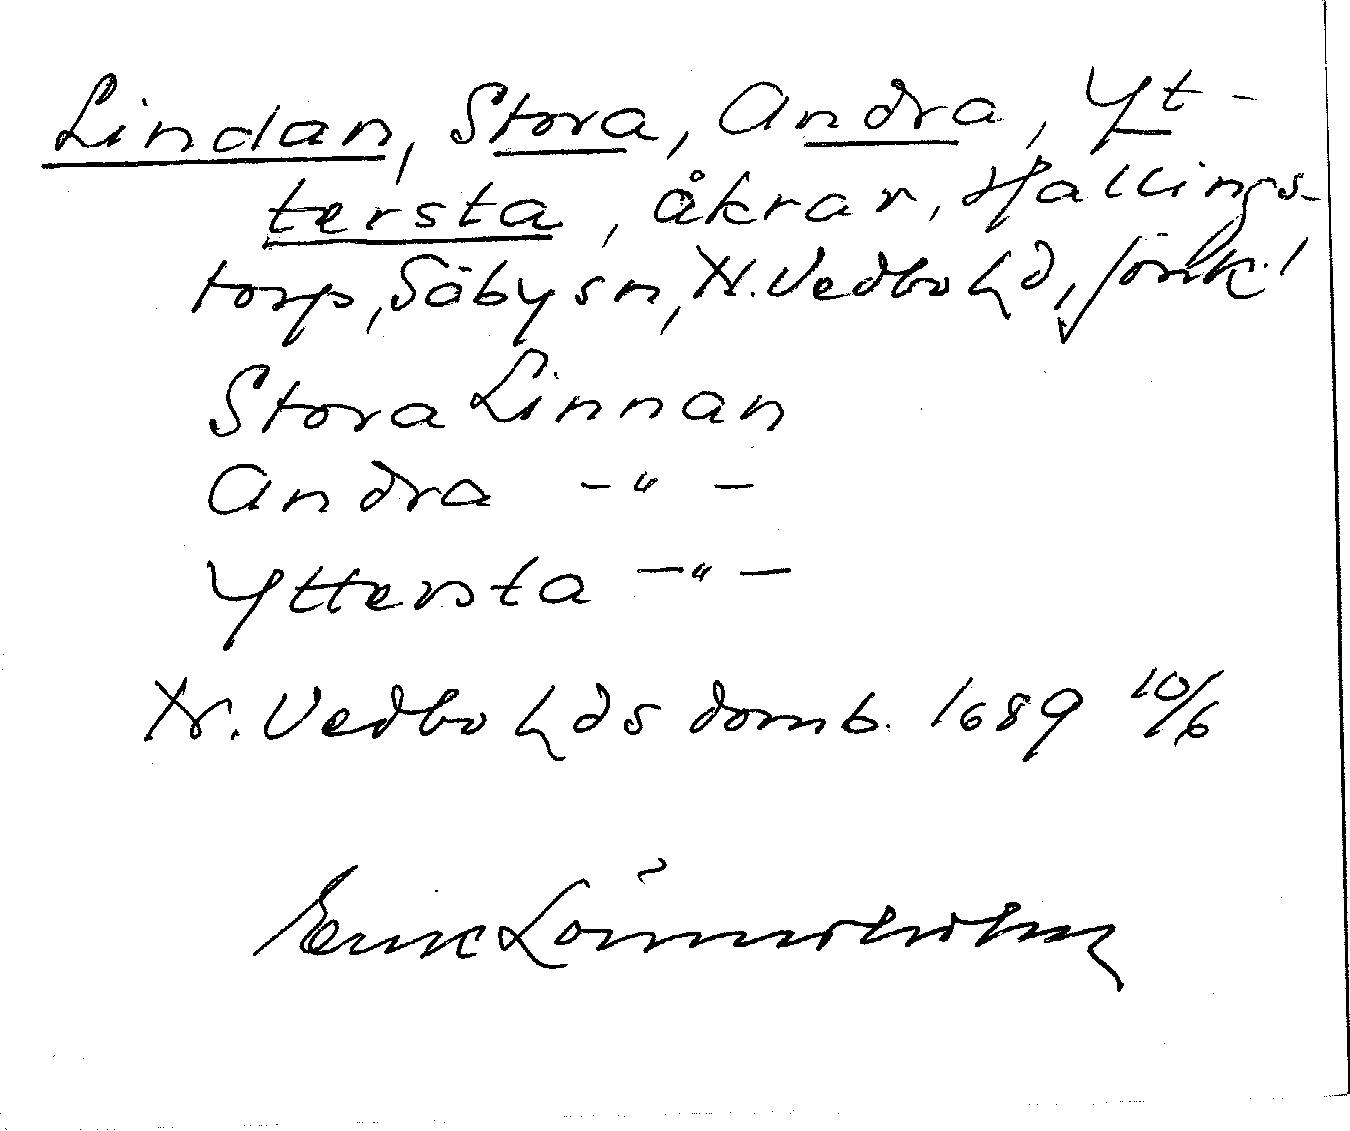 Lindan, Stora, Andra, Yt-
tersta, åkrar, Hallings-
torp, Säby sn, N. Vedbo hd, Jönk. l
Stora Linnan
Andra -"-
Yttersta -"-
N. Vedbo hds domb. 1689 10/6
Eric